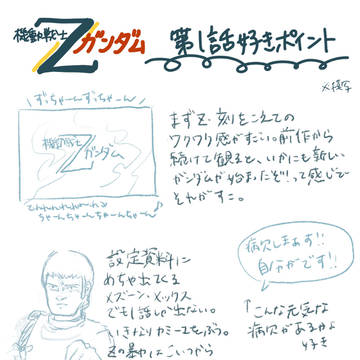 機動戦士
Zガンダム 第1話好きポイント
※模写
ずっちゃーんずっちゃーん
機動戦士
Zガンダム
ちゃーんちゃーんちゃーんちゃーん♪
まずZ・刻をこえての
ワクワク感がすごい。前作から
続けて観ると、いかにも新しい
ガンダムが始まったぞ!って感じで
それがすこ。
設定資料に
めちゃ出てくる
メズーン・メックス
でも1話しか出ない。
いきなりカミーユをぶつ。
Zの暴力はこいつから
病欠しまあす!!
自分がです!!
「こんな元気な
病欠があるかよ
好き